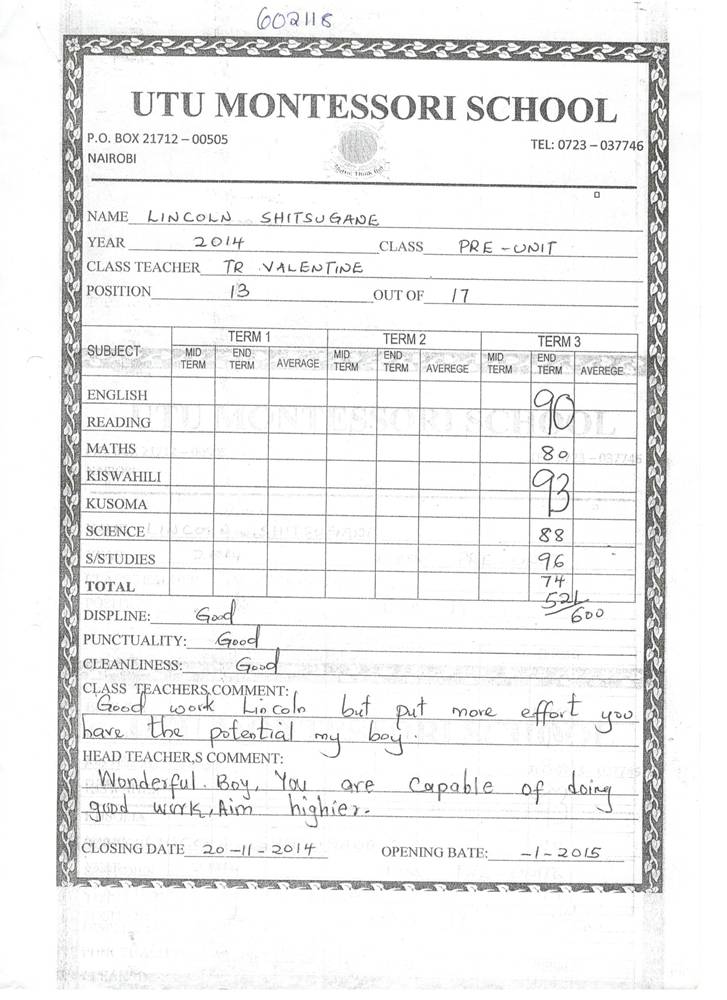 602118
UTU MONTESSORI SCHOOL
P.O. BOX 21712 – 00505
TEL: 0723 – 037746
NAIROBI
NAME LINCOLN SHITSUGANE
YEAR 2014 CLASS PRE-UNIT
CLASS TEACHER TR VALENTINE
POSITION 13 OUT OF 17
SUBJECT TERM 1 TERM 2 TERM 3
MID TERM END TERM AVERAGE MID TERM END TERM AVEREGE MID TERM END TERM AVEREGE
ENGLISH 90
READING
MATHS 80
KISWAHILI 93
KUSOMA
SCIENCE 88
S/STUDIES 96
74
TOTAL 521/600
DISPLINE: Good
PUNCTUALITY: Good
CLEANLINESS: Good
CLASS TEACHERS,COMMENT:
Good work Lincoln but put more effort you
have the potential my boy.
HEAD TEACHER,S COMMENT:
Wonderful. Boy, You are capable of doing
good work, Aim highier.
CLOSING DATE 20-11-2014 OPENING BATE: -1-2015